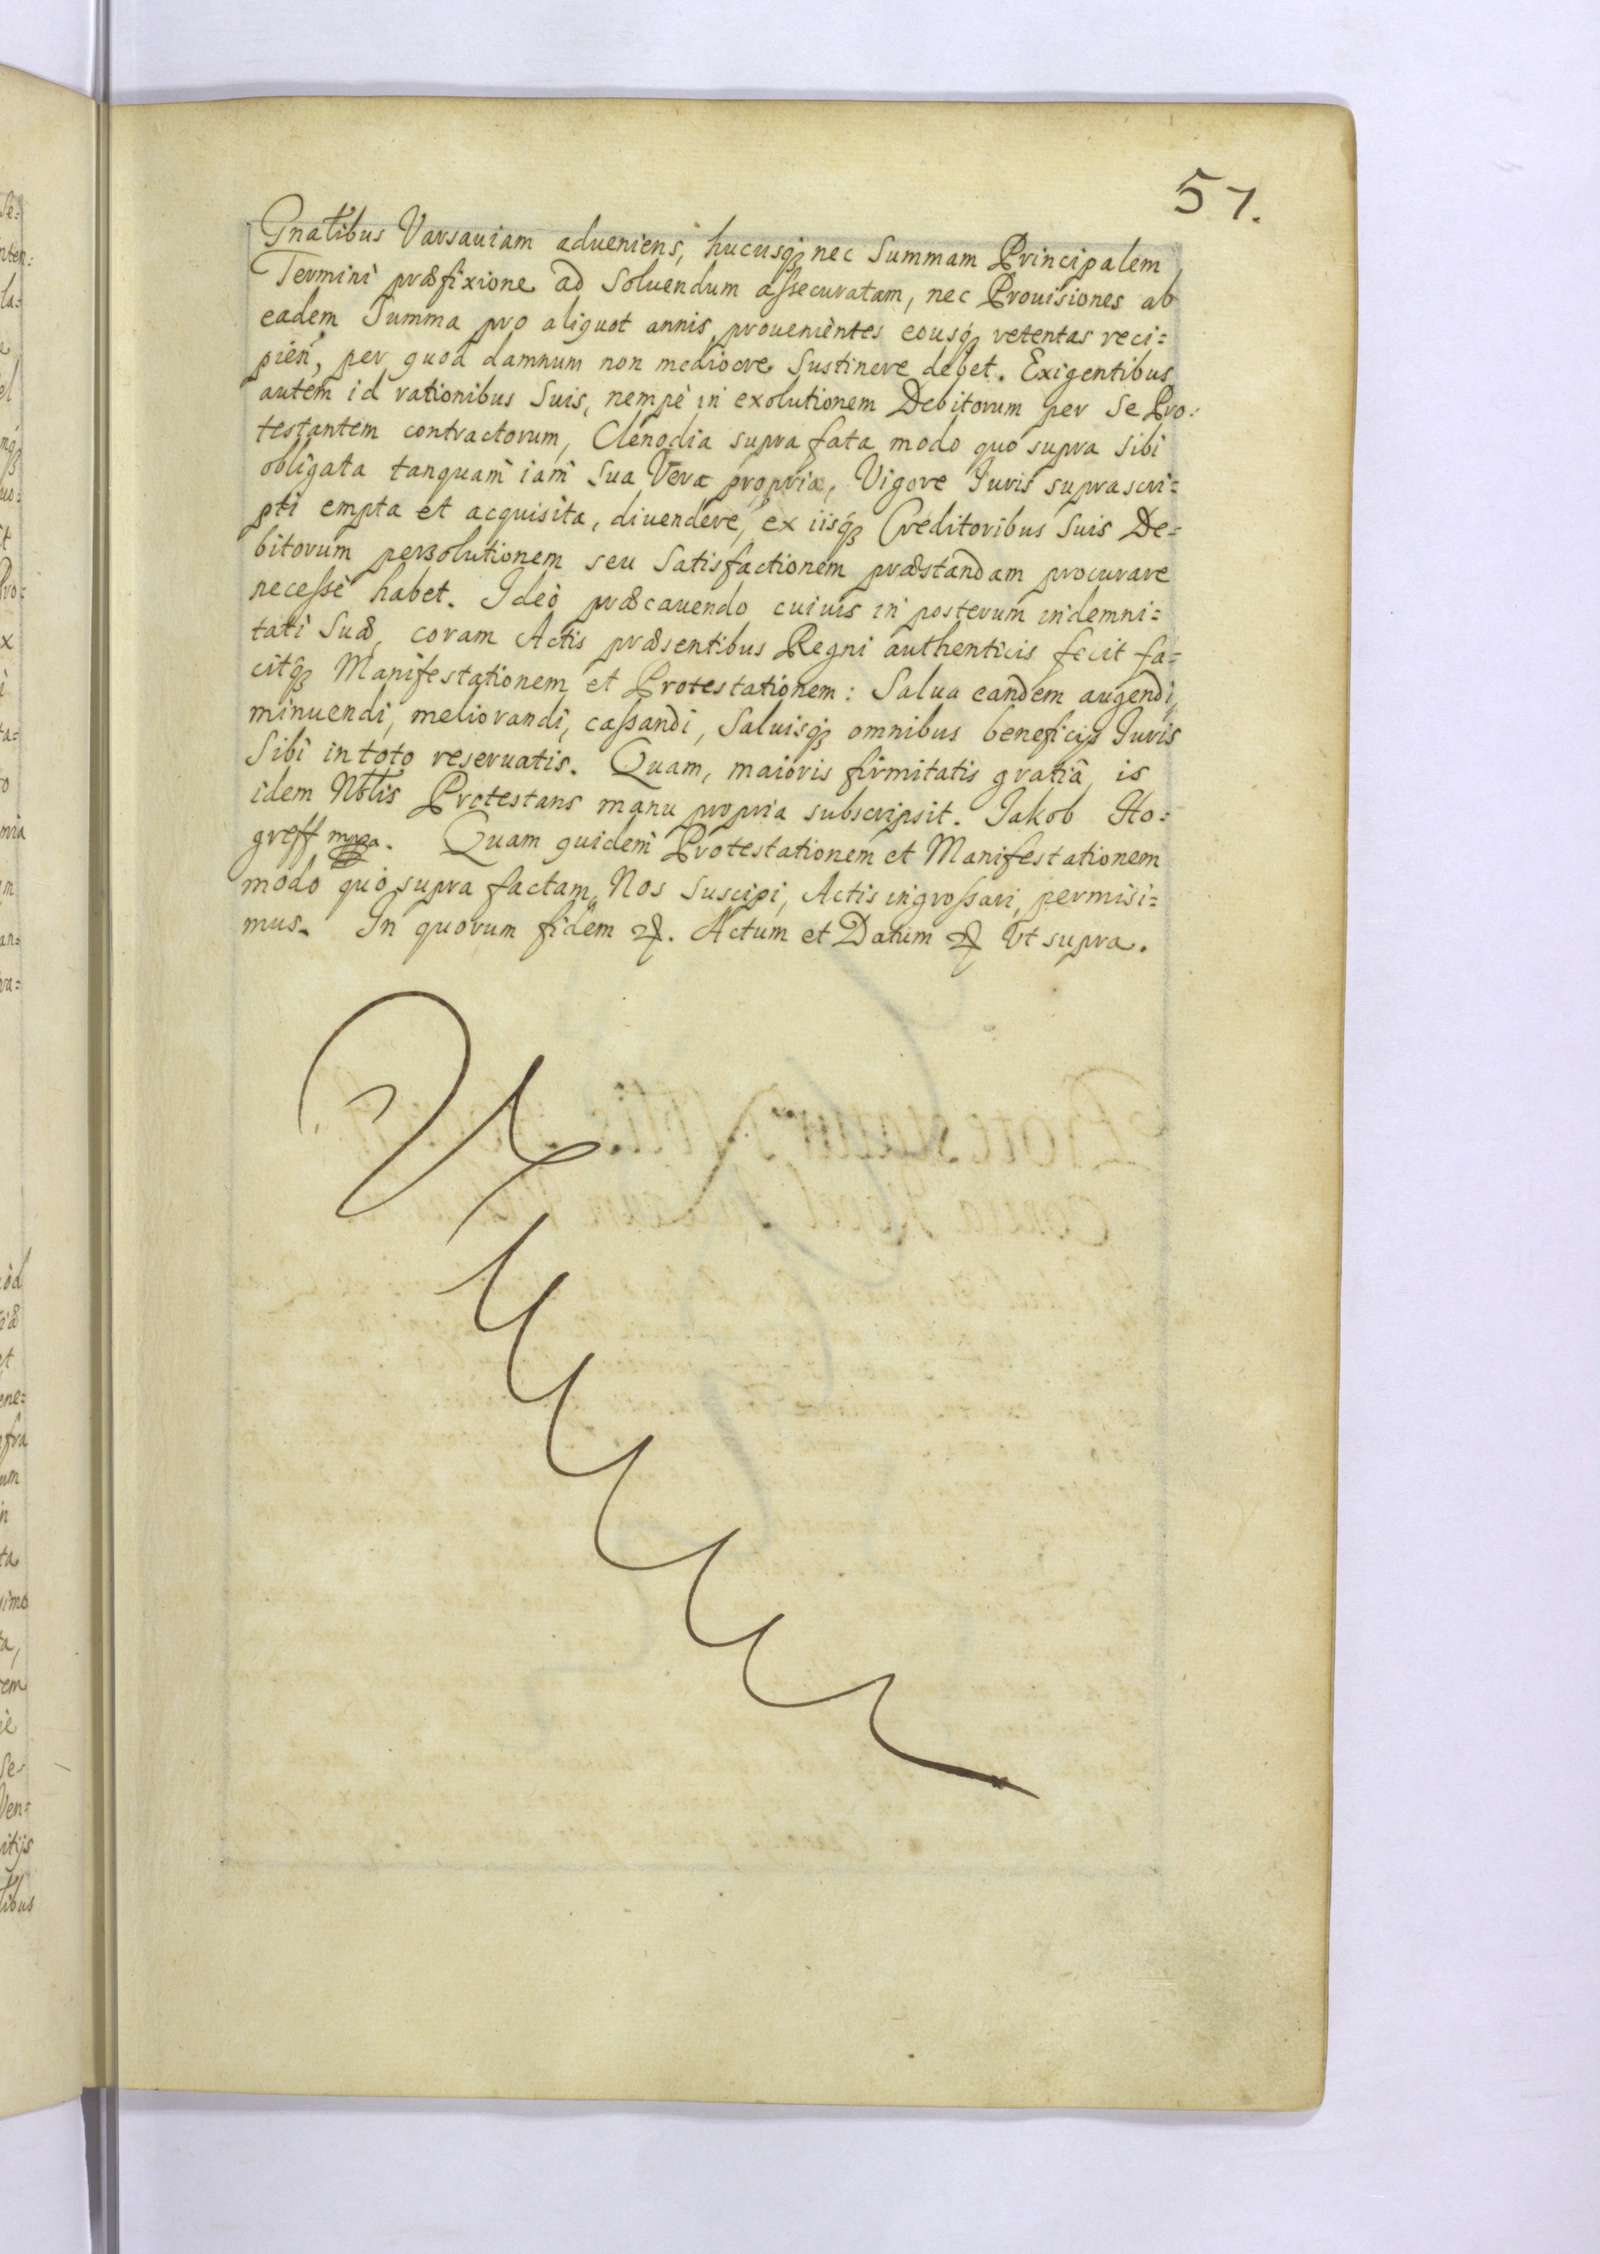 57.
Gnalibus Varsauiam adueniens, hucusq; nec Summam Principalem
Termini præfixione ad Soluendum assecuratam, nec Prouisiones ab
eadem Summa pro aliquot annis prouenientes eousq; retentas reci=
pień, per quod damnum non mediocre Sustinere debet. Exigentibus
autem id rationibus Suis, nempè in exolutionem Debitorum per Se Pro=
testantem contractorum, Clenodia supra fata modo quo supra Sibi
obligata tanquam iam Sua Vera propria, Vigore Iuris suprascri=
pti empta et acquisita, diuendere, ex iisq; Creditoribus Suis De=
bitorum persolutionem seu Satisfactionem præstandam procurare
necesse habet. Ideò præcauendo cuiuis in posterum indemni=
tati Suæ, coram Actis præsentibus Regni authenticis fecit fa=
citq; Manifestationem et Protestationem: Salua eandem augendi,
minuendi, meliorandi, cassandi, Saluisq; omnibus beneficijs Iuris
Sibi in toto reseruatis. Quam, maioris firmitatis gratiâ, is
idem Nblis Protestans manu propria subscripsit. Jakob Ho=
greff mppa. Quam quidem Protestationem et Manifestationem
modo quo supra factam, Nos Suscipi, Actis ingrossari, permisi=
mus. In quorum fidem &. Actum et Datum & Vt supra.